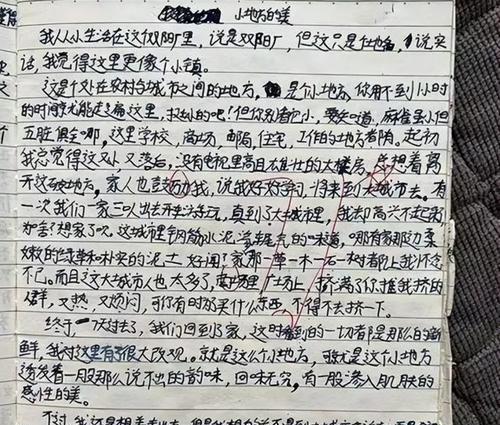 小地方的美
我从小生活在这双阳厂里，说是双阳厂，但这只是住地名，说实
话，我觉得这里更像个小镇。
这是个处在农村与城市之间的地方，是个小地方，你用不到1小时
的时间就能走遍这里，挺小的吧！但你别看它小，要知道，麻雀虽小但
五脏俱全哪，这里学校，商场，邮局，住宅，工作的地方都有。起初
我总觉得这又小又落后，没有电视里高且太壮的大楼房，总想着离
开这破地方，家人也鼓励我，说我好好学习，将来到大城市去。有
一次我们一家三口出去开车游玩，真到了大城市里，我却高兴不起来
为啥？想家了呗，这城市里钢筋水泥 的味道，哪有家那边柔
嫩的绿草和朴实的泥土好闻！家那一草一木一石一树都让我怀念
不已。而且这大城市人也太多了，商场里广场上，挤满了你推我挤的
人群，又热，又烦闷，可你有时为买什么东西，不得不去挤一下。
终于一天过去了，我们回到了家，这时看到的一切都是那么的新
鲜，我对这里有了很大改观。就是这么个小地方，可就是这个小地方
透发着一股那么说不出的韵味，回味无穷，有一股渗入肌肤的
感性的美。
不过我还是想